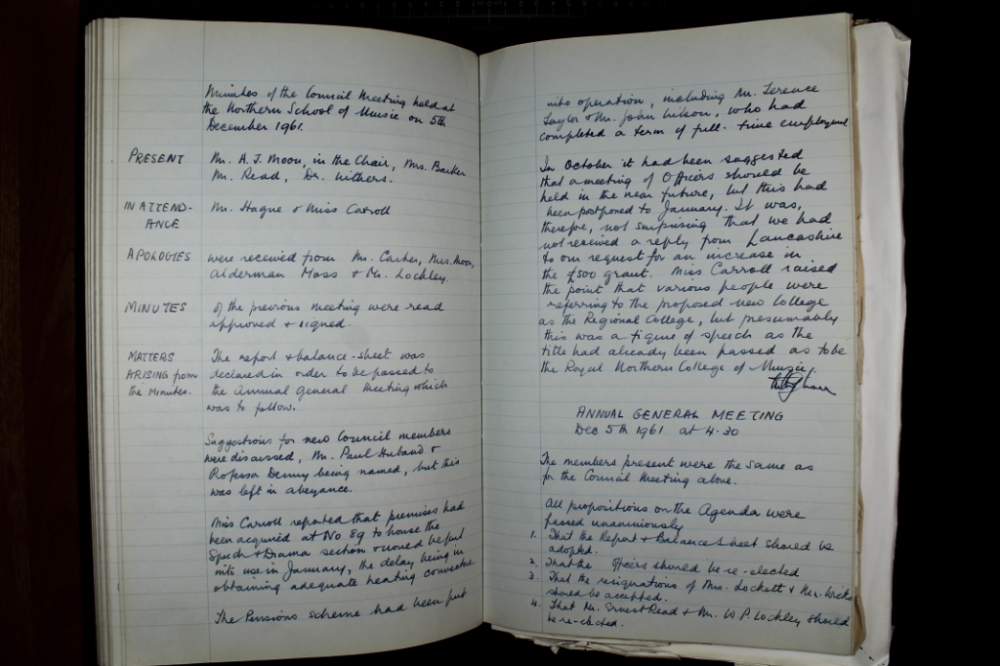 Minutes of the Council Meeting held at
the Northern School of Music on 5th
December 1961.
PRESENT
Mr. A. J. Moon, in the Chair, Mrs. Barker
Mr. Read, Dr. Withers.
IN ATTEND-
ANCE
Mr. Hague & Miss Carroll
APOLOGIES
were received from Mr. Carter, Mrs. Moon,
Alderman Moss & Mr. Lockley.
MINUTES
of the previous meeting were read
approved & signed.
MATTERS
ARISING from
the Minutes.
The report & balance-sheet was
declared in order to be passed to
the Annual General Meeting which
was to follow.
Suggestions for new Council members
were discussed, Mr. Paul Huband &
Professor Denny being named, but this
was left in abeyance.
Miss Carroll reported that premises had
been acquired at No 89 to house the
Speech & Drama section & would be put
into use in January, the delay being in
obtaining adequate heating
The Pensions scheme had been put
into operation, including Mr. Terence
Taylor & Mr. John Wilson, who had
completed a term of full-time employment
In October it had been suggested
that a meeting of Officers should be
held in the near future, but this had
been postponed to January. It was,
therefore, not surprising that we had
not received a reply from Lancashire
to our request for an increase in
the £500 grant. Miss Carroll raised
the point that various people were
referring to the proposed new College
as the Regional College, but presumably
this was a figure of speech as the
title had already been passed as to be
the Royal Northern College of Music.
ANNUAL GENERAL MEETING
Dec 5th 1961 at 4.30
The members present were the same as
for the Council Meeting above.
All propositions on the Agenda were
passed unanimously
1. That the Report & Balance Sheet should be
adopted.
2. That the Officers should be re-elected
3. That the resignations of Mrs. Lockett &
should be accepted.
4. That Mr. Ernest Read & Mr. W. P. Lockley should
be re-elected.